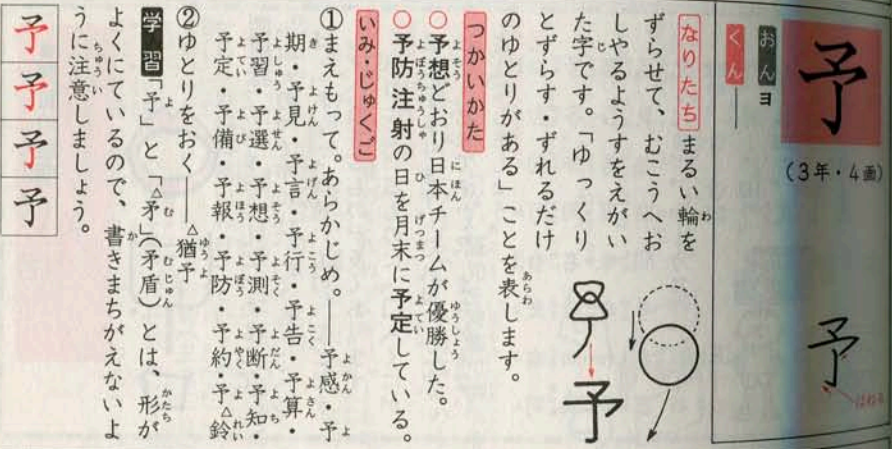 予
(3年・4画)
おん ヨ
くん ―
予
はねる
なりたち まるい輪を
ずらせて、むこうへお
しやるようすをえがい
た字です。「ゆっくり
とずらす・ずれるだけ
のゆとりがある」ことを表します。
予
つかいかた
○予想どおり日本チームが優勝した。
○予防注射の日を月末に予定している。
いみ・じゅくご
①まえもって。あらかじめ。――予感・予
期・予見・予言・予行・予告・予算・
予習・予選・予想・予測・予断・予知・
予定・予備・予報・予防・予約・予△鈴
②ゆとりをおく――△猶予
学習 「予」と「△矛」(矛盾)とは、形が
よくにているので、書きまちがえないよ
うに注意しましょう。
予 予 予 予